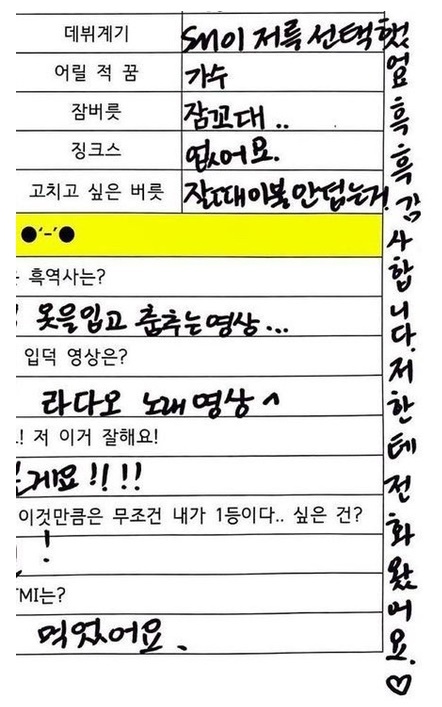 데뷔계기 SM이 저를 선택했
어릴 적 꿈 가수
잠버릇 잠꼬대..
징크스 없어요.
고치고 싶은 버릇 잘때 이불 안 덥는거.
●'-'●
흑역사는?
옷을 입고 춤추는 영상...
입덕 영상은?
라디오 노래 영상^
.! 저 이거 잘해요!
게요!!!!
이것만큼은 무조건 내가 1등이다.. 싶은 건?
!
TMI는?
먹었어요.
엄
흑
흑
감
사
합
니
다.
저
한
테
전
화
왔
어
요.
♡